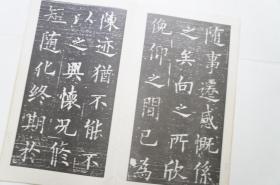 随事遷感慨係
之矣向之所欣
俛仰之間已為
陳迹猶不能不
以之興懷况脩
短随化終期於